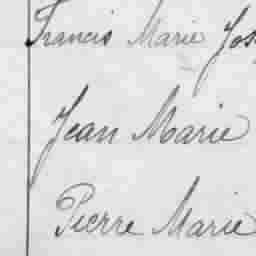 Francis Marie Jos
Jean Marie
Pierre Marie